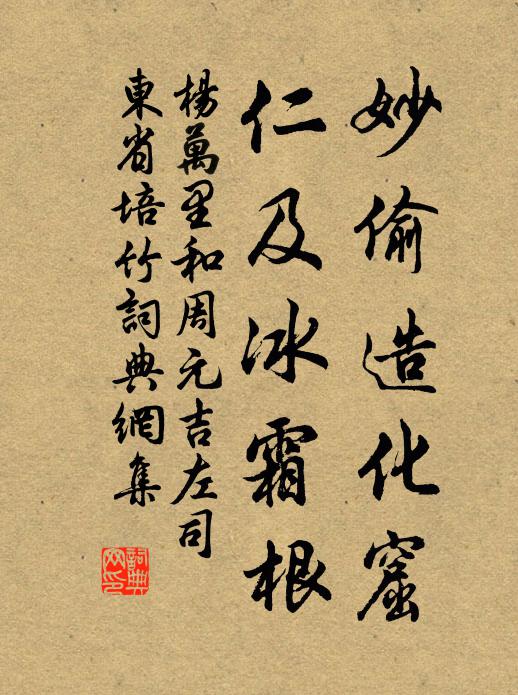 妙偷造化窟
仁及冰霜根
楊萬里和周元吉左司
東省培竹詞典網集
詞典
网印